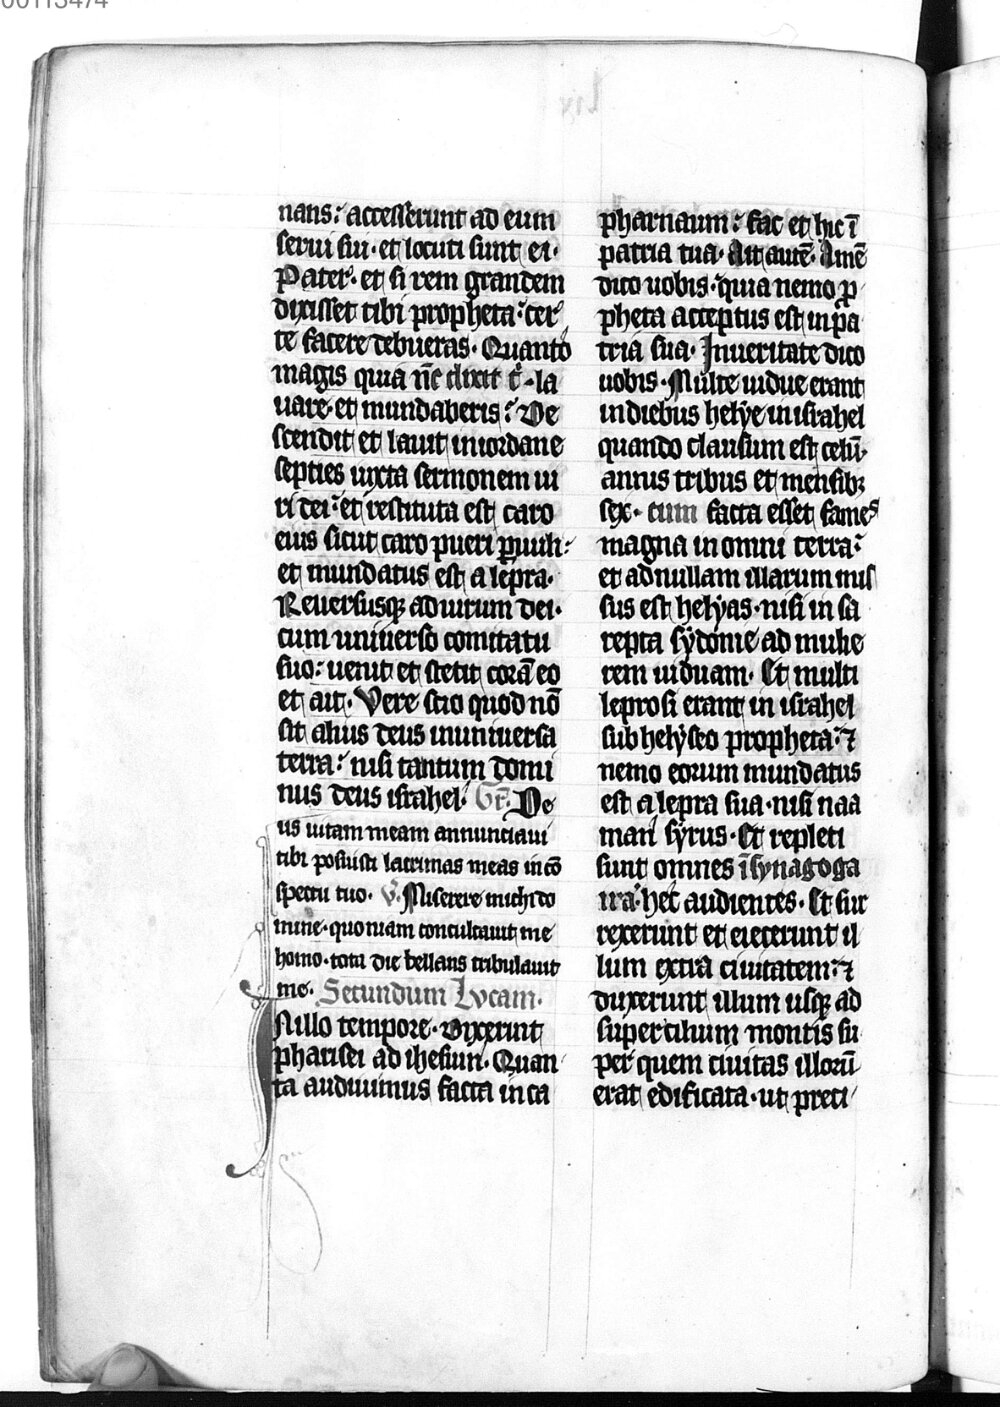 00113474
nans: accesserunt ad eum
serui sui· et locuti sunt ei·
Pater· et si rem grandem
dixisset tibi propheta: cer
te facere debueras· Quanto
magis quia nc̄ dixit t̄·la
uare· et mundaberis? De
scendit et lauit iniordane
septies iuxta sermonem ui
ri dei: et restituta est caro
eius sicut caro pueri ꝑuuli:
et mundatus est a lepra·
Reuersusqꝫ ad uirum dei·
cum uniuerso comitatu
suo: uenit et stetit corā eo
et ait· Vere scio quod nō
sit alius deus inuniuersa
terra: nisi tantum domi
nus deus israhel· Gr̄. De
us uitam meam annunciaui
tibi posuisti lacrimas meas incō
spectu tuo· V̄· Miserere michi do
mine· quoniam conculcauit me
homo· tota die bellans tribulauit
me· Secundum Lvcam·
In illo tempore· Dixerunt
pharisei ad ihesum· Quan
ta audiuimus facta inca
pharnaum: fac et hic ī
patria tua· Ait autē· Amē
dico uobis· quia nemo ꝓ
pheta acceptus est inpa
tria sua· Inueritate dico
uobis· Multe uidue erant
indiebus helye inisrahel
quando clausum est celū·
annis tribus et mensibꝫ
sex· cum facta esset fames
magna in omni terra:
et adnullam illarum mis
sus est helyas· nisi in sa
repta sydonie ad mulie
rem uiduam· Et multi
leprosi erant in israhel
sub helyseo propheta: ⁊
nemo eorum mundatus
est a lepra sua· nisi naa
man syrus· Et repleti
sunt omnes ī synagoga
ira· hec audientes· Et sur
rexerunt et eiecerunt il
lum extra ciuitatem: ⁊
duxerunt illum usqꝫ ad
supercilium montis su
per quem ciuitas illorū
erat edificata· ut preci